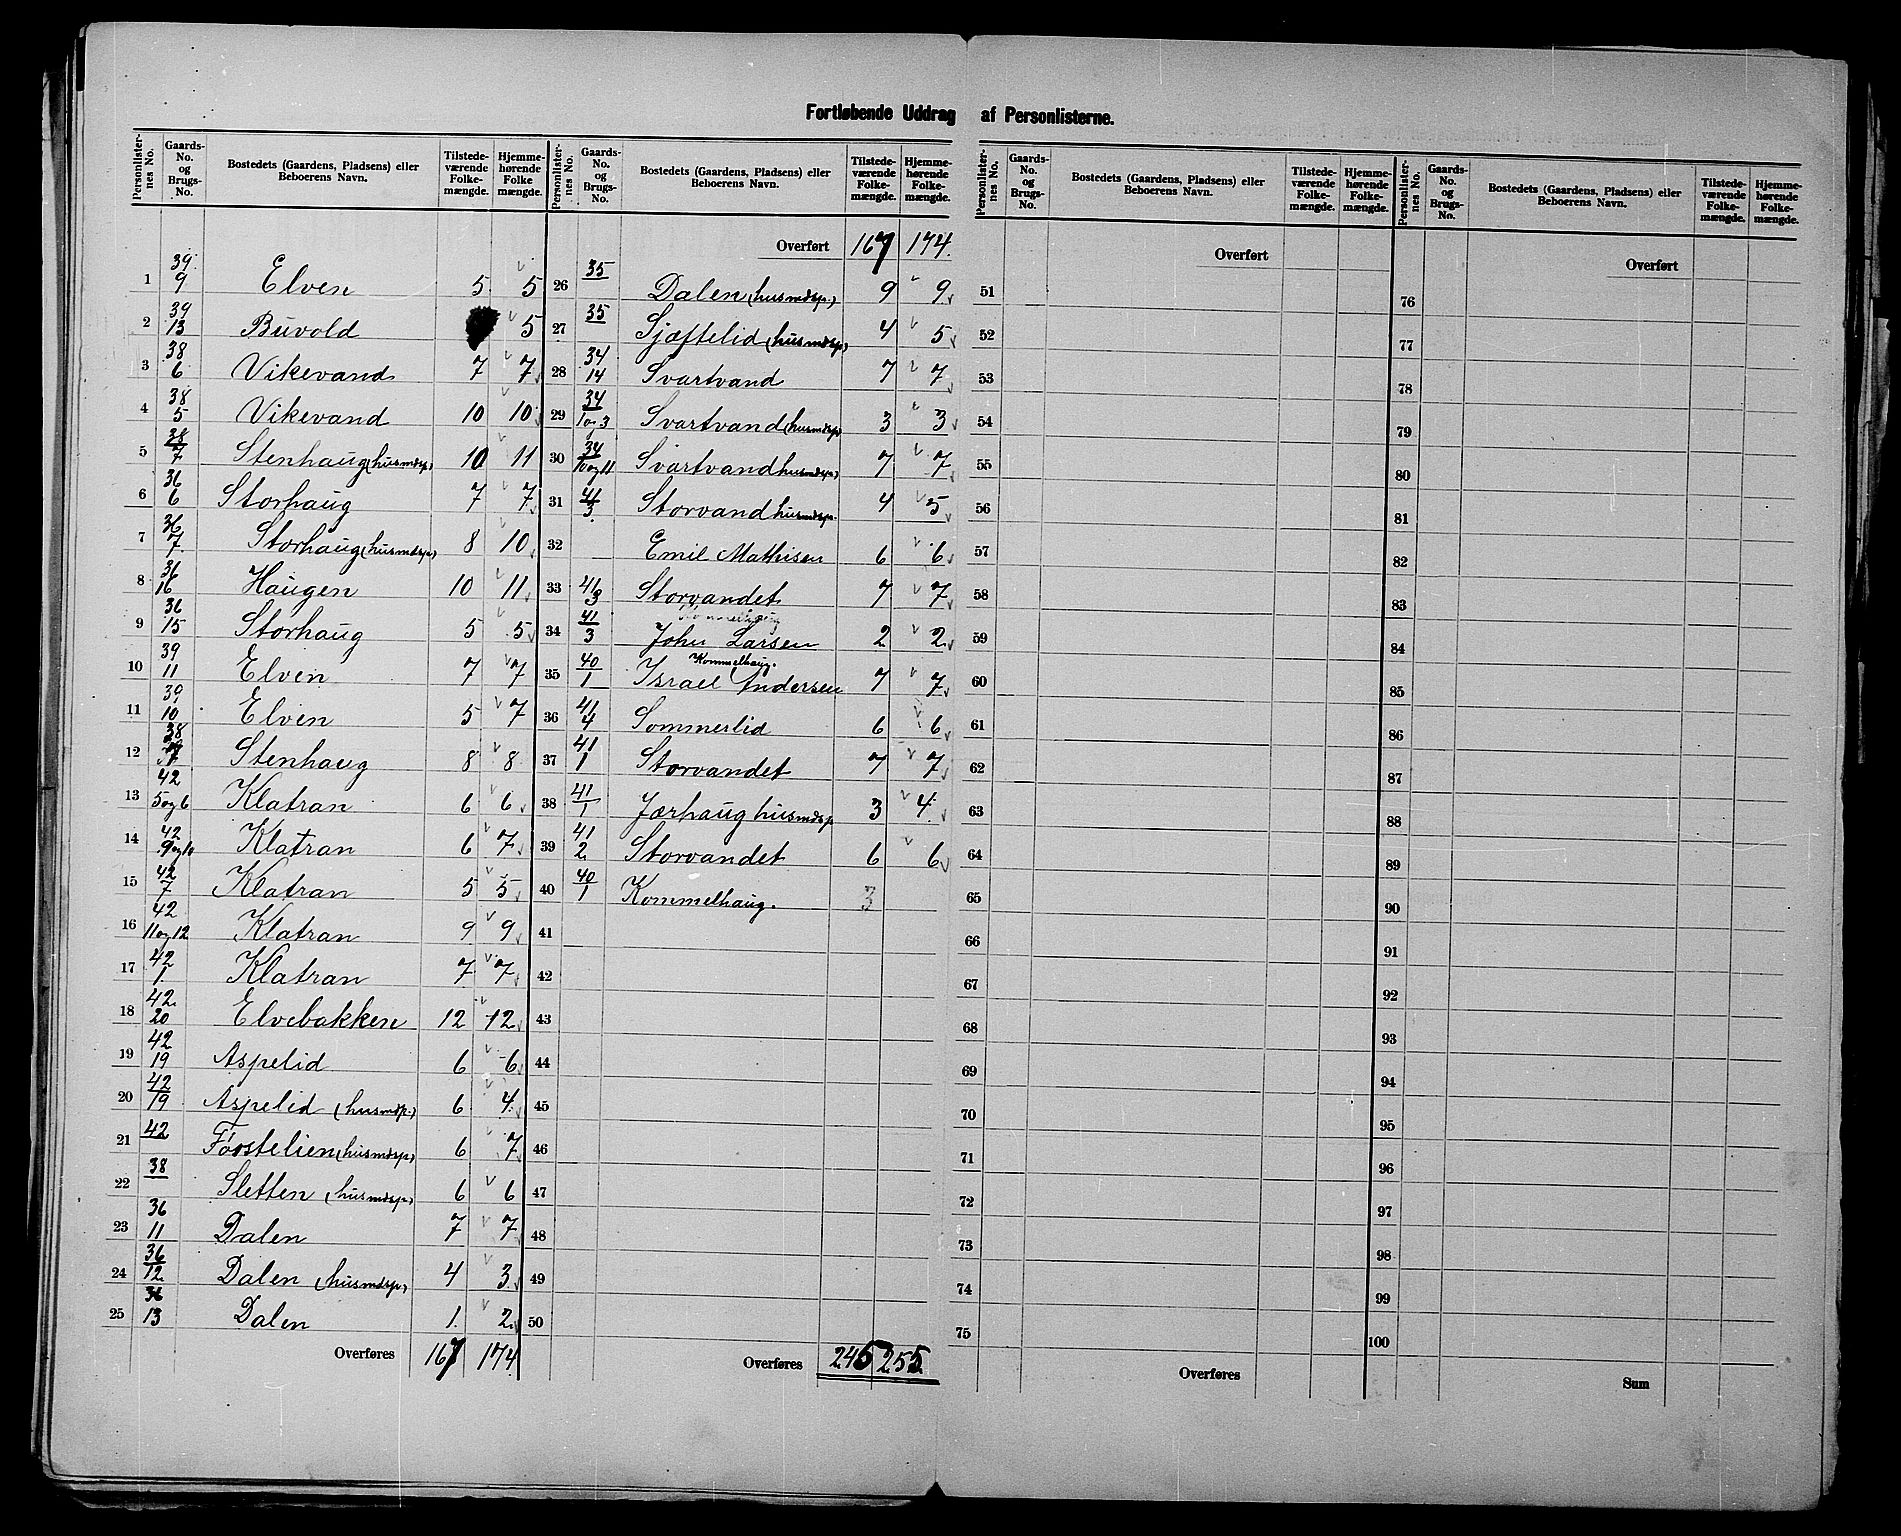 Fortløbende Uddrag af Personlisterne.
Personlister-nes No. Gaards-No. og Brugs-No. Bostedets (Gaardens, Pladsens) eller Beboerens Navn. Tilstede-værende Folke-mængde. Hjemme-hørende Folke mængde.
1 39/9 Elven 5 5
2 39/13 Buvold 5
3 38/6 Vikevand 7 7
4 38/5 Vikevand 10 10
5 38/7 Stenhaug (husmdsp.) 10 11
6 36/6 Storhaug 7 7
7 36/7 Storhaug (husmdsp.) 8 10
8 36/16 Haugen 10 11
9 36/15 Storhaug 5 5
10 39/11 Elven 7 7
11 39/10 Elven 5 7
12 38 Stenhaug 8 8
13 42/5 og 6 Klatran 6 6
14 42/9 og 10 Klatran 6 7
15 42/7 Klatran 5 5
16 42/11 og 12 Klatran 9 9
17 42/1. Klatran 7 7
18 42/20 Elvebakken 12 12
19 42/19 Aspelid 6 6
20 42/19 Aspelid (husmdsp.) 6 4
21 42 (husmdsp.) 6 7
22 38 Sletten (husmdsp.) 6 6
23 36/11 Dalen 7 7
24 36/12 Dalen (husmdsp.) 4 3
25 36/13 Dalen 1. 2
Overføres 167 174
Personlister-nes No. Gaards-No. og Brugs-No. Bostedets (Gaardens, Pladsens) eller Beboerens Navn. Tilstede-værende Folke-mængde. Hjemme-hørende Folke-mængde.
Overført 167 174.
26 35 Dalen (husmdsp.) 9 9
27 35 Sjæftelid (husmdsp) 4 5
28 34/14 Svartvand 7 7
29 34/1 og 3 Svartvand (husmdsp) 3 3
30 34/10 og 11 Svartvand husmdsp) 7 7
31 41/3 Storvand husmdsp. 4 5
32 Emil Mathisen 6 6
33 41/3 Storvandet 7 7
34 41/3 John Larsen 2 2
35 40/1 Kommelhaug. Israel Andersen 7 7
36 41/4 Sommerlid 6 6
37 41/1 Storvandet 7 7
38 41/1 Jærhaug husmdsp 3 4
39 41/2 Storvandet 6 6
40 40/1 Kommelhaug. 3
41
42
43
44
45
46
47
48
49
50
Overføres 245 255
Personlister-nes No. Gaards-No. og Brugs-No. Bostedets (Gaardens, Pladsens) eller Beboerens Navn. Tilstede-værende Folke-mængde. Hjemme-hørende Folke-mængde.
Overført
51
52
53
54
55
56
57
58
59
60
61
62
63
64
65
66
67
68
69
70
71
72
73
74
75
Overføres
Personlister-nes No. Gaards-No. og Brugs-No. Bostedets (Gaardens, Pladsens) eller Beboerens Navn. Tilstede-værende Folke-mængde. Hjemme-hørende Folke-mængde.
Overført
76
77
78
79
80
81
82
83
84
85
86
87
88
89
90
91
92
93
94
95
96
97
98
99
100
Sum